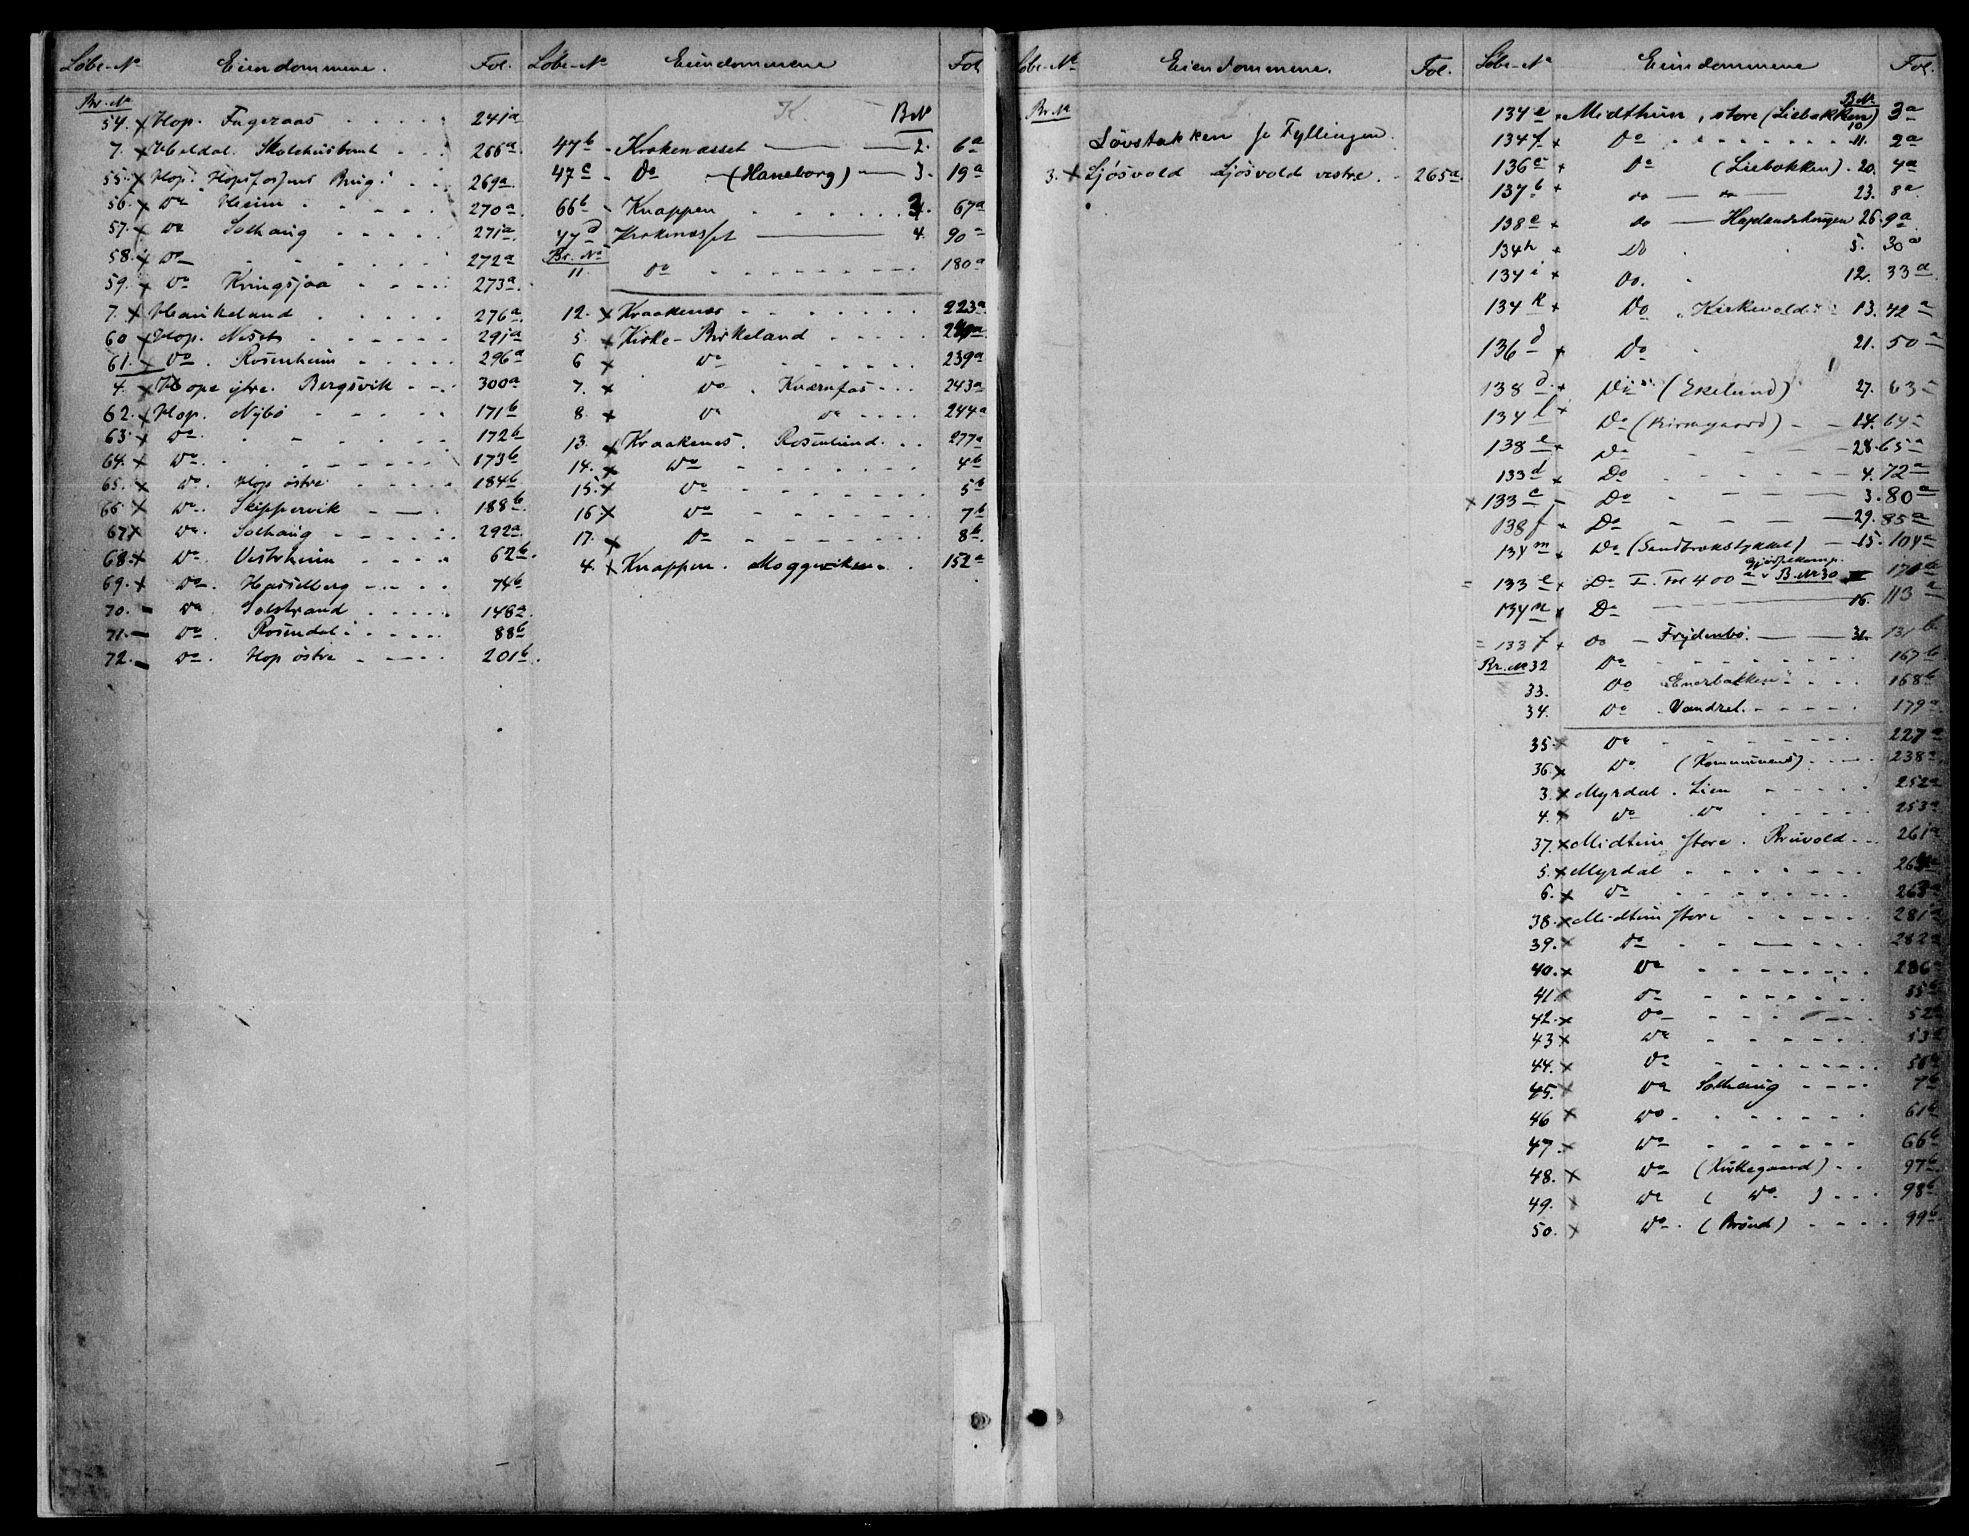 Löbe-No Eiendommene. Fol.
Br. No
54. x Hop. Fageraas 241a
7. x Heldal. Skolehustomt 266a
55. x Hop. "Hopsfossens Brug" 269a
56. x Do Heim 270a
57. x Do Solhaug 271a
58. x Do 272a
59. x Do Kringsjaa 273a
7. x Haukeland 276a
60 x Hop. Neset 291a
61. x Do. Rosenheim 296a
4. x Hope ytre. Bergsvik 300a
62. x Hop. Nybö 171b
63. x Do. 172b
64. x Do. 173b
65. x Do. Hop östre 184b
66. x Do. Skippervik 188b
67 x Do. Solhaug 292a
68. x Do. Vestrheim 62b
69. x Do. Hasselberg 74b
70. - Do. Solstrand 148a
71. - Do. Rosendal 88b
72. - Do. Hop östre 201b
Löbe-No Eiendommene Fol.
K. B.No
47b Krokenæsset 2. 6a
47c Do (Haneborg) 3. 19a
66b Knappen 67a
47d Krokenæsset 4. 90a
Br. No
11. Do 180a
12. x Kraakenæs 223a
5. x Kirke-Birkeland
6 x Do 239a
7. x Do. Kværnfos 243a
8. x Do Do 244a
13. x Kraakenes. Rosenlund 277a
14. x Do 4b
15. x Do 5b
16 x Do 7b
17. x Do 8b
4. x Knappen. Moggeviken 152a
Löbe-No Eiendommene. Fol.
Br. No L.
Løvstakken se Fyllingen
3. x Sjösvold Sjösvold vestre 265a
Löbe-No Eiendommene Fol.
B.No
134e x Midthun, store (Liebakken) 10 3a
134f x Do 11. 2a
136c x Do (Liebakken) 20. 4a
137b x do 23. 8a
138c do Haplandskogen 26. 9a
134h x Do 5. 30a
134i x Do. 12. 33a
134k x Do "Kirkevold" 13. 42a
136d x Do 21. 50a
138d x Do (Ekelund) 27. 63a
134l x Do (Birmgaard) 14. 64a
138e x Do 28. 65a
133d x Do 4. 72a
x 133c - Do 3. 80a
138f x Do 29. 85a
134m x Do (Sandbrekstykket) 15. 104a
= 133e x Do I. Fol 400a B.No 30
134n x Do 16. 113a
= 133f x Do Frydenbö. 31. 131b
Br. No 32 Do 167b
33. Do "Enerbakken" 168b
34. Do Vandret 179a
35 x Do 227a
36 x Do (Kommunens) 238a
3. x Myrdal. Lien 252a
4. x Do Do 253a
37. x Midtun store. Bruvold 261a
5. x Myrdal
6. x Do
38. x Midtun store 281a
39. x Do 282a
40. x Do 286a
41 x Do 35b
42. x Do 52b
43 x Do 53b
44. x Do
45. x Do Solhaug 7b
46 x Do 61b
47. x Do 66b
48. x Do (Kirkegaard) 97b
49. x Do ( Do ) 98b
50. x Do. (Brönd) 99b